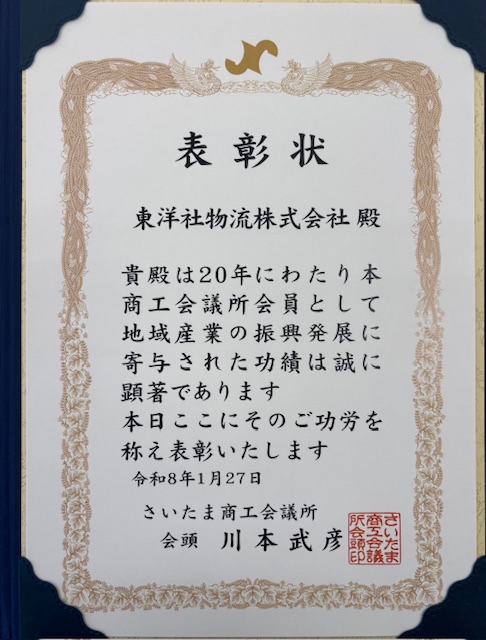 表彰状
東洋社物流株式会社 殿
貴殿は20年にわたり本
商工会議所会員として
地域産業の振興発展に
寄与された功績は誠に
顕著であります
本日ここにそのご功労を
称え表彰いたします
令和8年1月27日
さいたま商工会議所
会頭 川本武彦
さいたま
商工会議
所会頭印